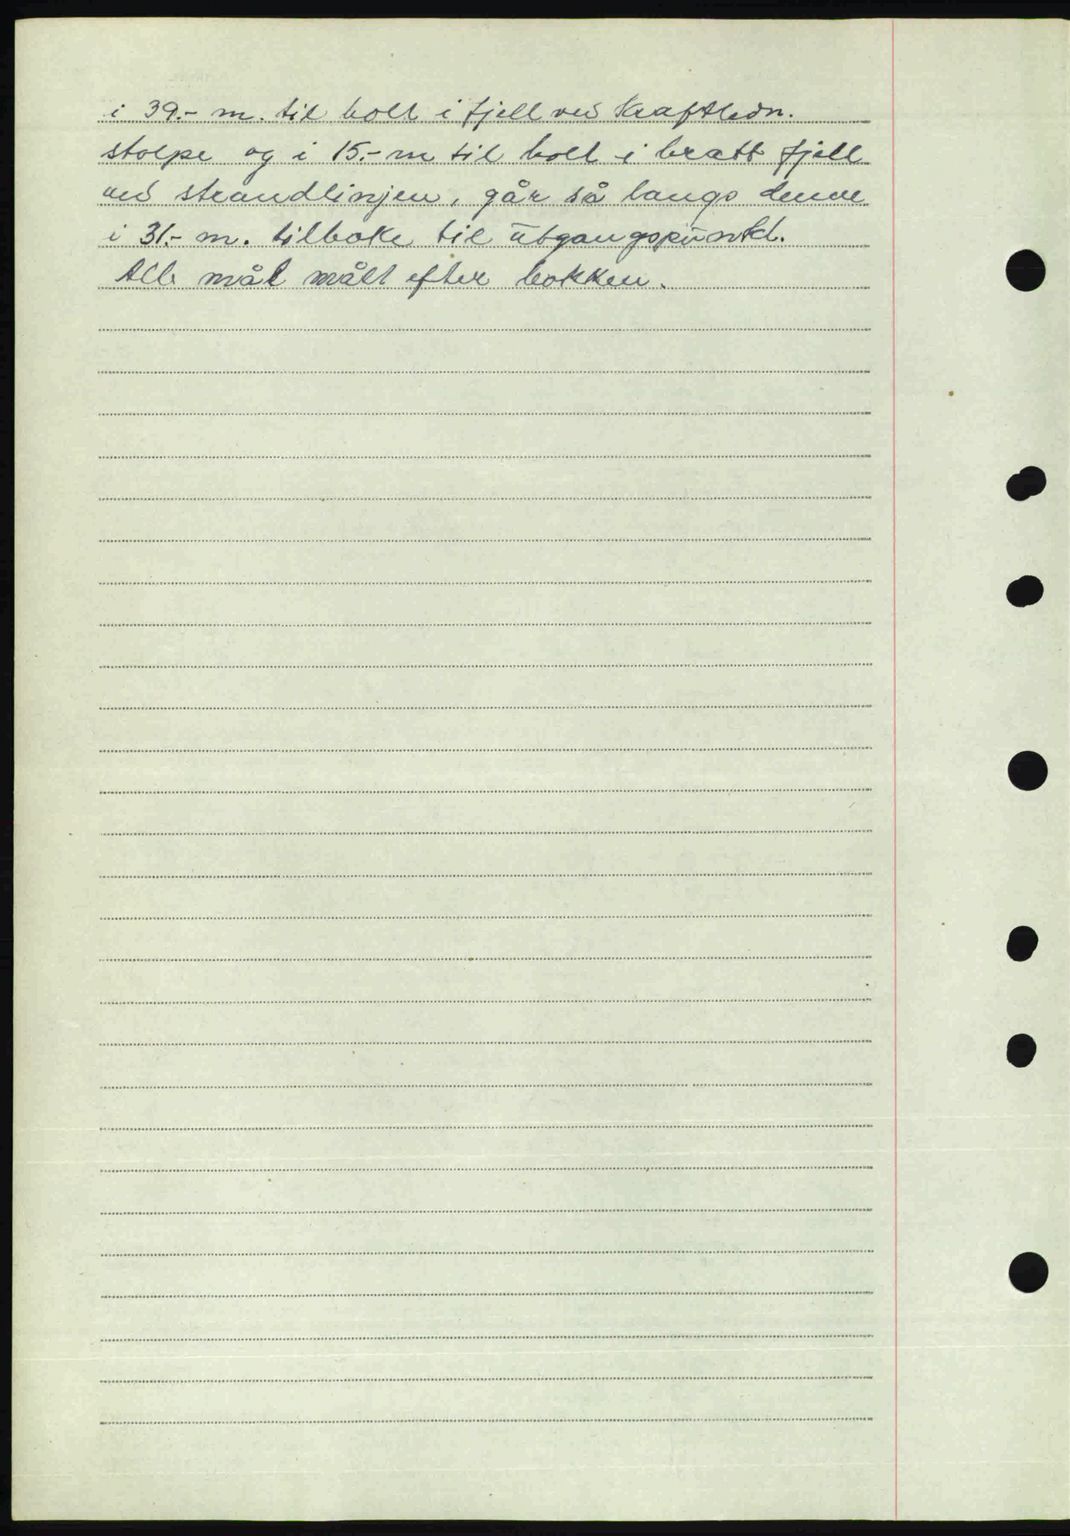 i 39.- m. til bolt i fjell ved kraftledn.
stolpe og i 15.- m til bolt i bratt fjell
ved strandlinjen, går så langs denne
i 31.- m. tilbake til utgangspunktet.
Alle mål målt efter bakken.